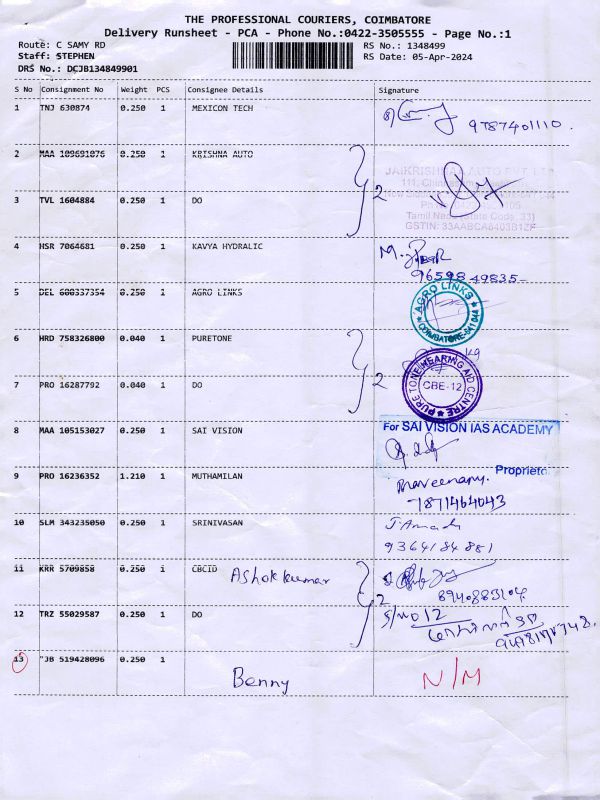 THE PROFESSIONAL COURIERS, COIMBATORE
Delivery Runsheet - PCA - Phone No.:0422-3505555 - Page No.:1
Route: C SAMY RD
RS No.: 1348499
Staff: STEPHEN
RS Date: 05-Apr-2024
DRS No.: DCJB134849901
S No Consignment No Weight PCS Consignee Details Signature
1 TNJ 630874 0.250 1 MEXICON TECH 9787401110.
2 MAA 109691076 0.250 1 KRISHNA AUTO
JAIKRISHNA AUTO PVT LTD
2
Tamil Nadu (State Code 33)
GSTIN: 33AABCA8403B1ZF
3 TVL 1604884 0.250 1 DO
4 HSR 7064681 0.250 1 KAVYA HYDRALIC
9659849835
5 DEL 600337354 0.250 1 AGRO LINKS
AGRO LINKS
COIMBATORE-641044
6 HRD 758326800 0.040 1 PURETONE
2
PURE TONE HEARING AID CENTRE
CBE-12
7 PRO 16287792 0.040 1 DO
8 MAA 105153027 0.250 1 SAI VISION
For SAI VISION IAS ACADEMY
Proprietor
9 PRO 16236352 1.210 1 MUTHAMILAN
7871464043
10 SLM 343235050 0.250 1 SRINIVASAN
9364184881
11 KRR 5709858 0.250 1 CBCID Ashokkumar
2
8940883104
12 TRZ 55029587 0.250 1 DO
13 "JB 519428096 0.250 1
Benny N/M